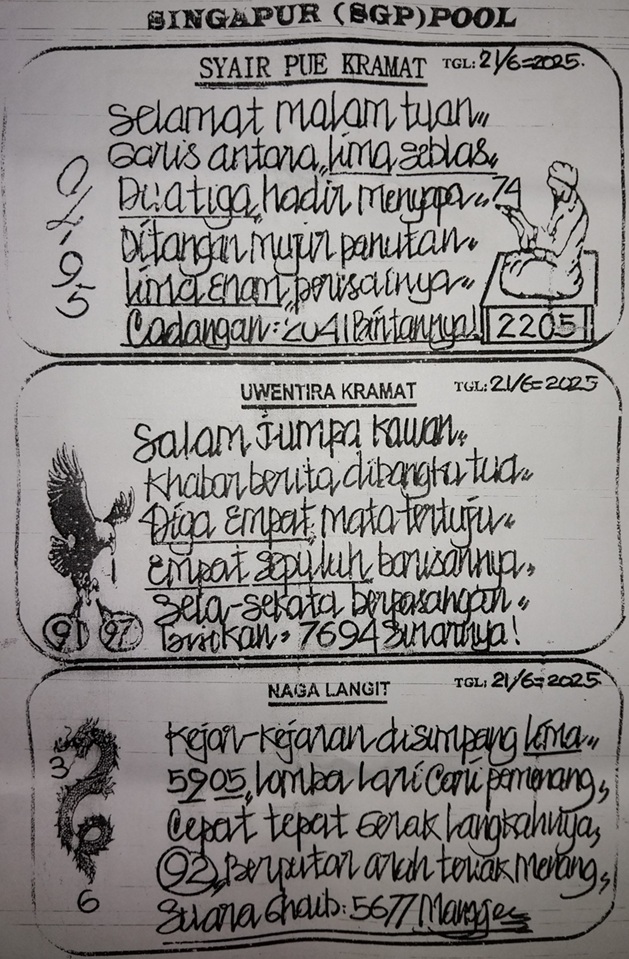 SINGAPUR (SGP) POOL
SYAIR PUE KRAMAT TGL: 21/6=2025.
Selamat malam tuan,,
Garis antara, lima seblas,,
Dua tiga, hadir menyapa,, 74
Ditangan mujur panutan,,
lima Enam, perisainya,,
Cadangan: 2041 Bintannya!
0
4
9
5
2205
UWENTIRA KRAMAT TGL: 21/6=2025
Salam Jumpa kawan,,
khabar berita dibangku tua,,
Tiga Empat, mata tertuju,,
Empat sepuluh barisannya,
Seia-sekata berpasangan,,
Bisikan = 7694 Sinarnya!
91 97
NAGA LANGIT TGL: 21/6=2025
Kejar-kejaran disimpang lima,,
5905, lomba lari Cari pemenang,
Cepat tepat Gerak langkahnya,
92, Berputar arah towak menang,
Suara Ghaib: 5677 Mangges
3
6